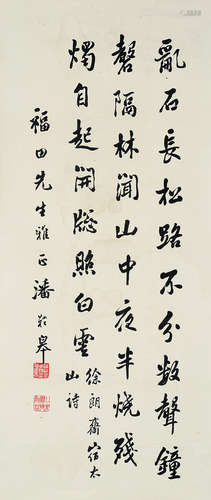 亂石長松路不分數聲鐘
磬隔林聞山中夜半燒殘
燭自起開窗照白雲
徐朗齋宿太
山詩
福田先生雅正潘齡皋